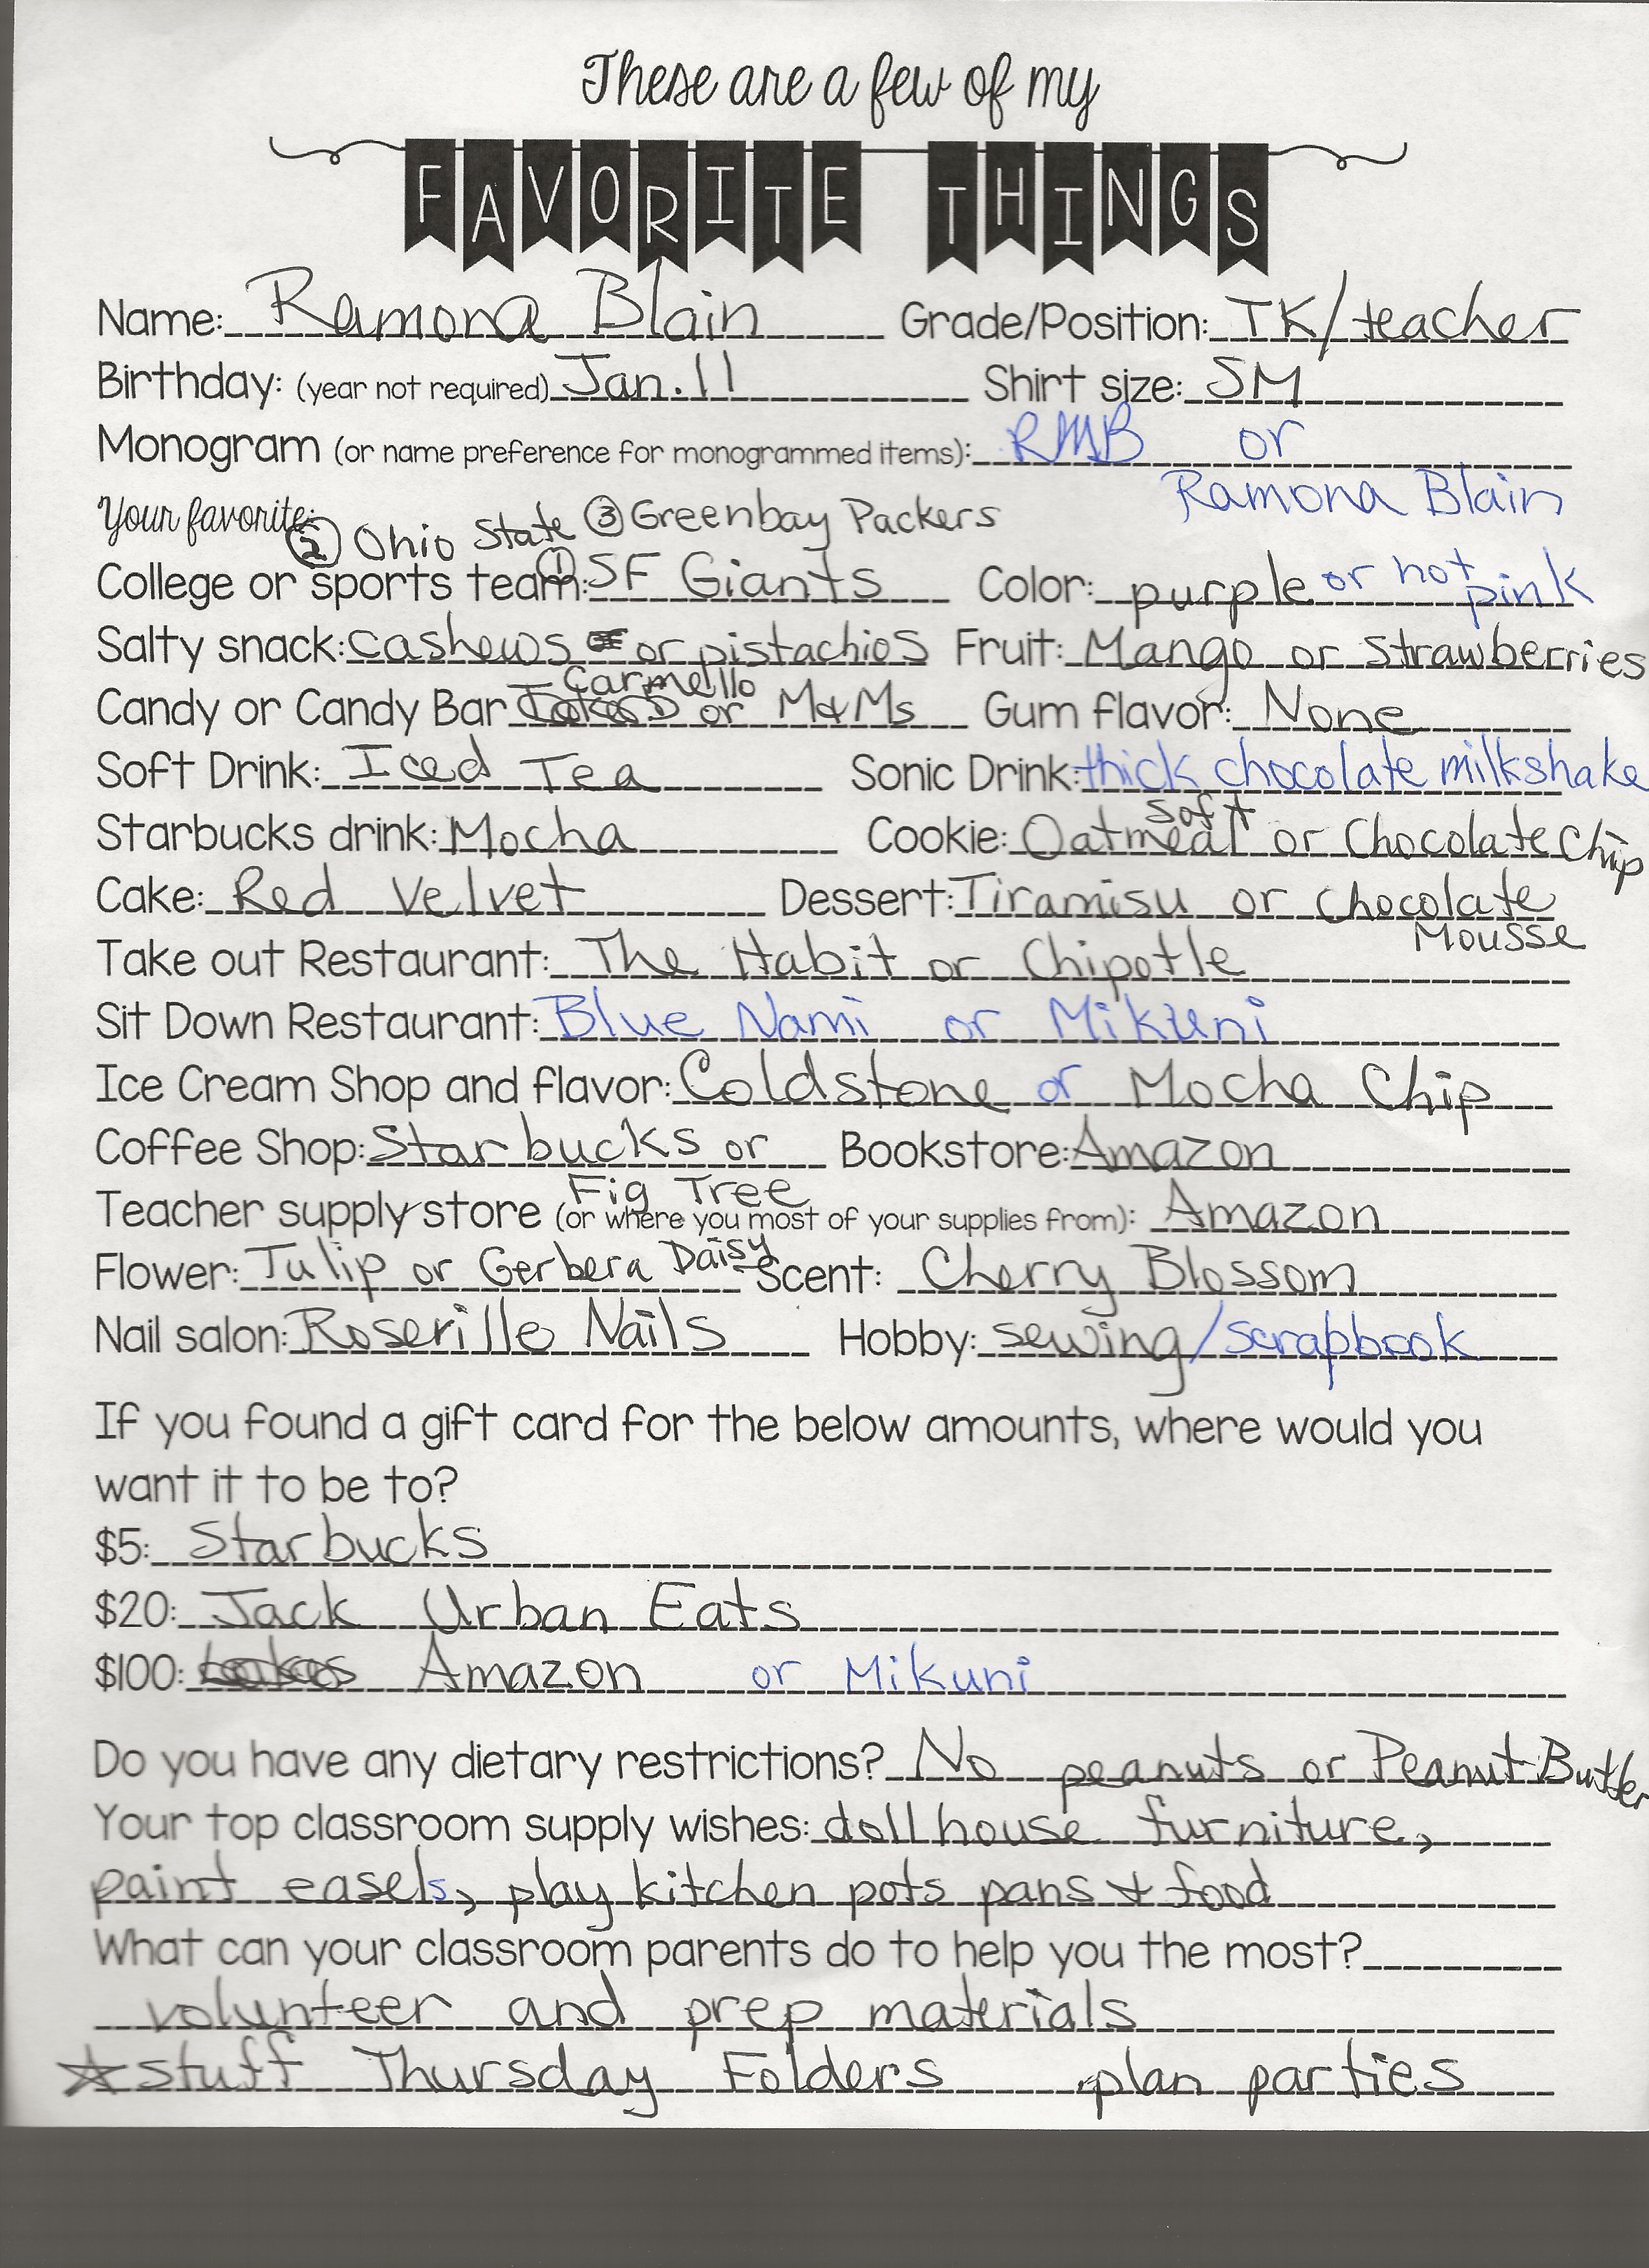 These are a few of my
FAVORITE THINGS
Name: Ramona Blain Grade/Position: TK/teacher
Birthday: (year not required) Jan. 11 Shirt size: SM
Monogram (or name preference for monogrammed items): RMB or
Ramona Blain
Your favorite:
② Ohio State ③ Greenbay Packers
College or sports team: ① SF Giants Color: purple or hot pink
Salty snack: cashews or pistachios Fruit: Mango or Strawberries
Candy or Candy Bar Carmello or M&Ms Gum flavor: None
Soft Drink: Iced Tea Sonic Drink: thick chocolate milkshake
Starbucks drink: Mocha Cookie: soft Oatmeal or Chocolate Chip
Cake: Red Velvet Dessert: Tiramisu or Chocolate
Mousse
Take out Restaurant: The Habit or Chipotle
Sit Down Restaurant: Blue Nami or Mikuni
Ice Cream Shop and flavor: Coldstone or Mocha Chip
Coffee Shop: Starbucks or Bookstore: Amazon
Fig Tree
Teacher supply store (or where you most of your supplies from): Amazon
Flower: Tulip or Gerbera Daisy Scent: Cherry Blossom
Nail salon: Roseville Nails Hobby: sewing/scrapbook
If you found a gift card for the below amounts, where would you
want it to be to?
$5: Starbucks
$20: Jack Urban Eats
$100: Amazon or Mikuni
Do you have any dietary restrictions? No peanuts or Peanut Butter
Your top classroom supply wishes: dollhouse furniture,
paint easels, play kitchen pots pans & food
What can your classroom parents do to help you the most?
volunteer and prep materials
☆ stuff Thursday Folders plan parties